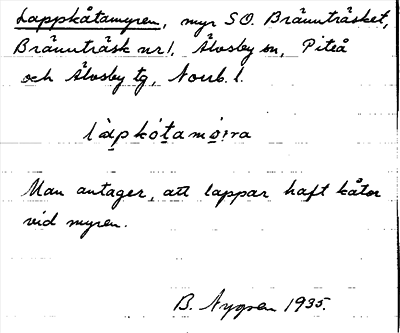 Lappkåtamyren, myr SO. Brännträsket,
Brännträsk nr 1, Älvsby sn, Piteå
och Älvsby tg, Norrb. l.
làpkótamø̀ra
Man antager, att lappar haft kåtor
vid myren.
B. Nygren 1935.